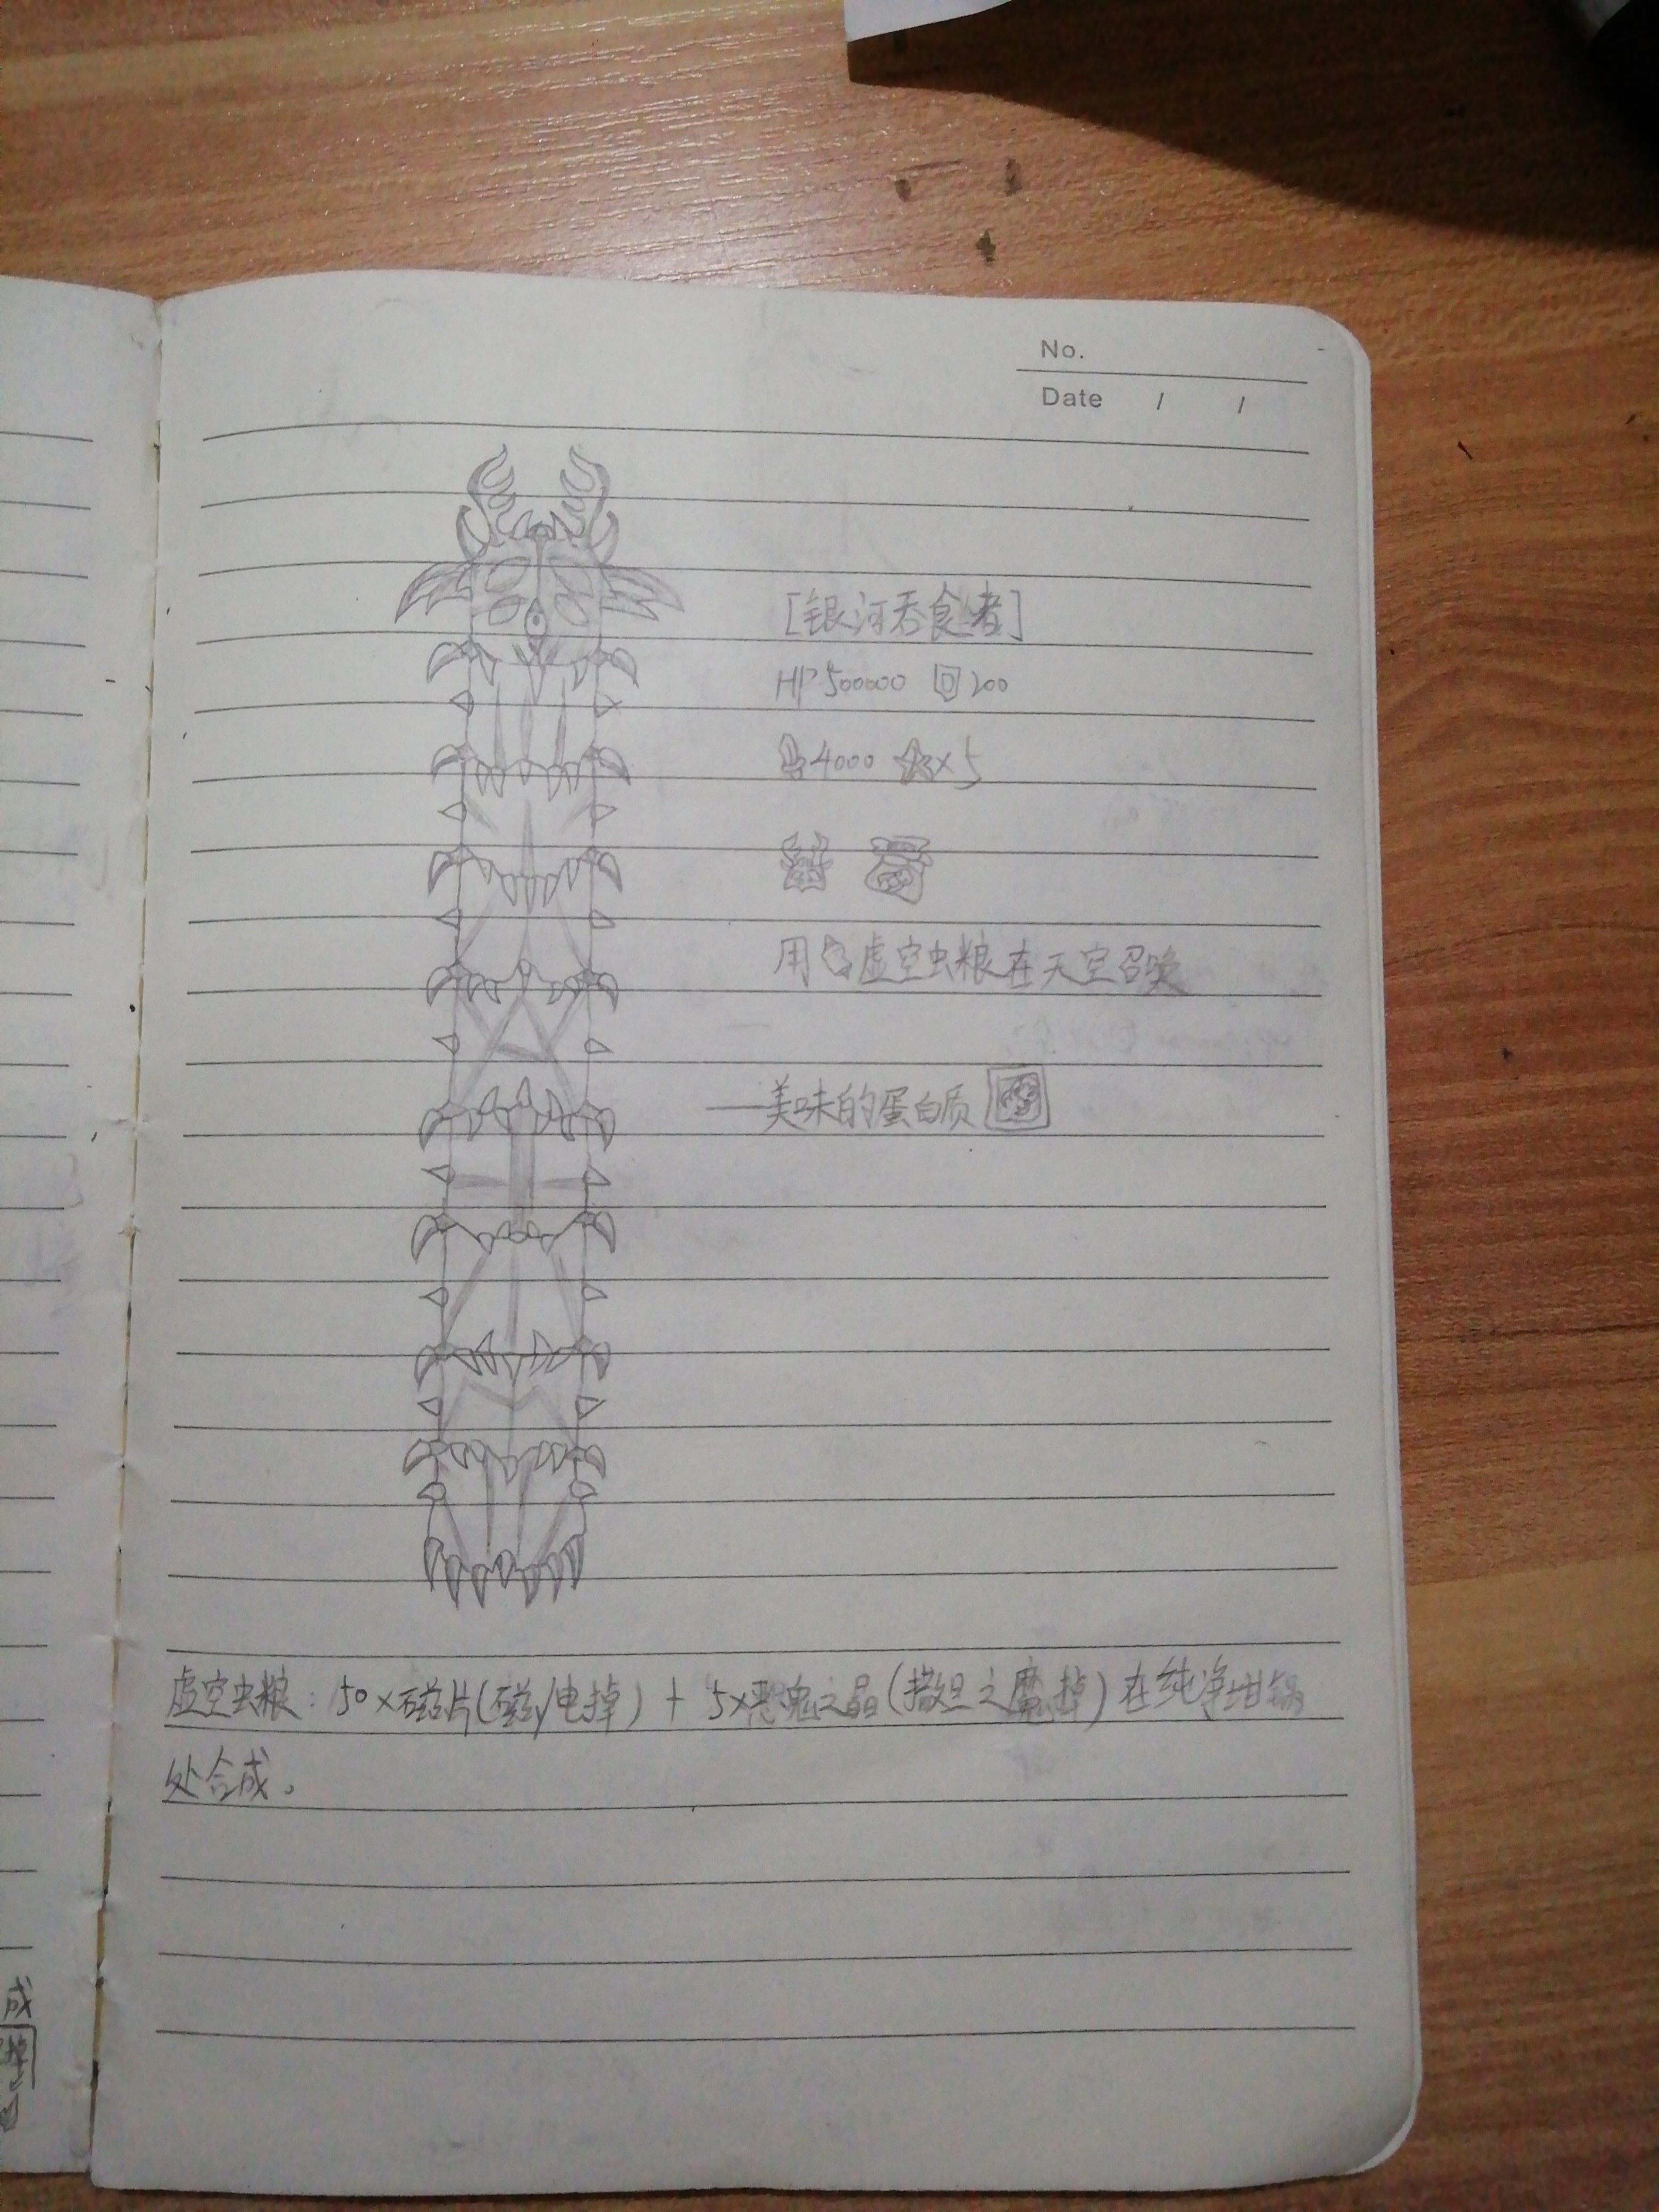 No.
Date / /
[银河吞食者]
HP 500000 200
4000 ×5
用虚空虫粮在天空召唤
——美味的蛋白质
虚空虫粮：50×磁片(磁/电掉) + 5×恶鬼之晶(撒旦之魔掉) 在纯净坩锅
处合成。
成